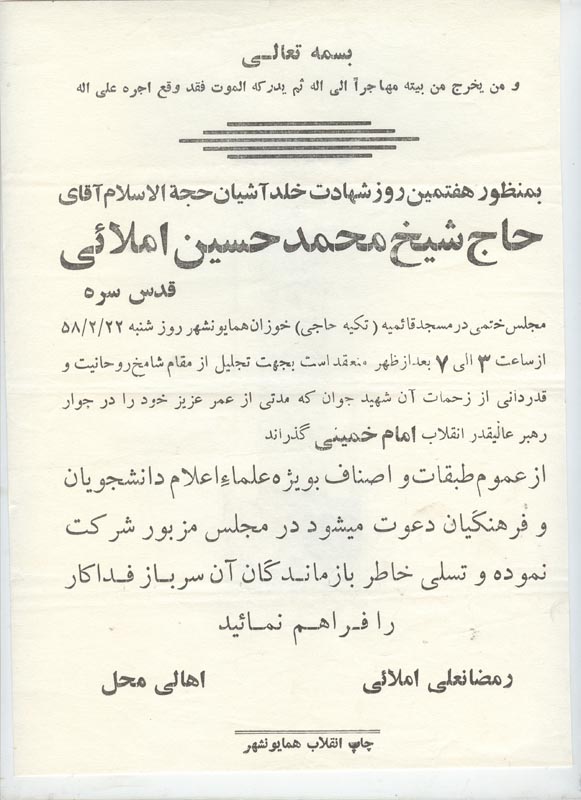 بسمه تعالی
و من یخرج من بیته مهاجراً الی اله ثم یدرکه الموت فقد وقع اجره علی اله
بمنظور هفتمین روز شهادت خلدآشیان حجة الاسلام آقای
حاج شیخ محمد حسین املائی
قدس سره
مجلس ختمی در مسجد قائمیه (تکیه حاجی) خوزان همایونشهر روز شنبه ۵۸/۲/۲۲
از ساعت ۳ الی ۷ بعد از ظهر منعقد است بجهت تجلیل از مقام شامخ روحانیت و
قدردانی از زحمات آن شهید جوان که مدتی از عمر عزیز خود را در جوار
رهبر عالیقدر انقلاب امام خمینی گذراند
از عموم طبقات و اصناف بویژه علماءِ اعلام دانشجویان
و فرهنگیان دعوت میشود در مجلس مزبور شرکت
نموده و تسلی خاطر بازماندگان آن سرباز فداکار
را فراهم نمائید
رمضانعلی املائی اهالی محل
چاپ انقلاب همایونشهر